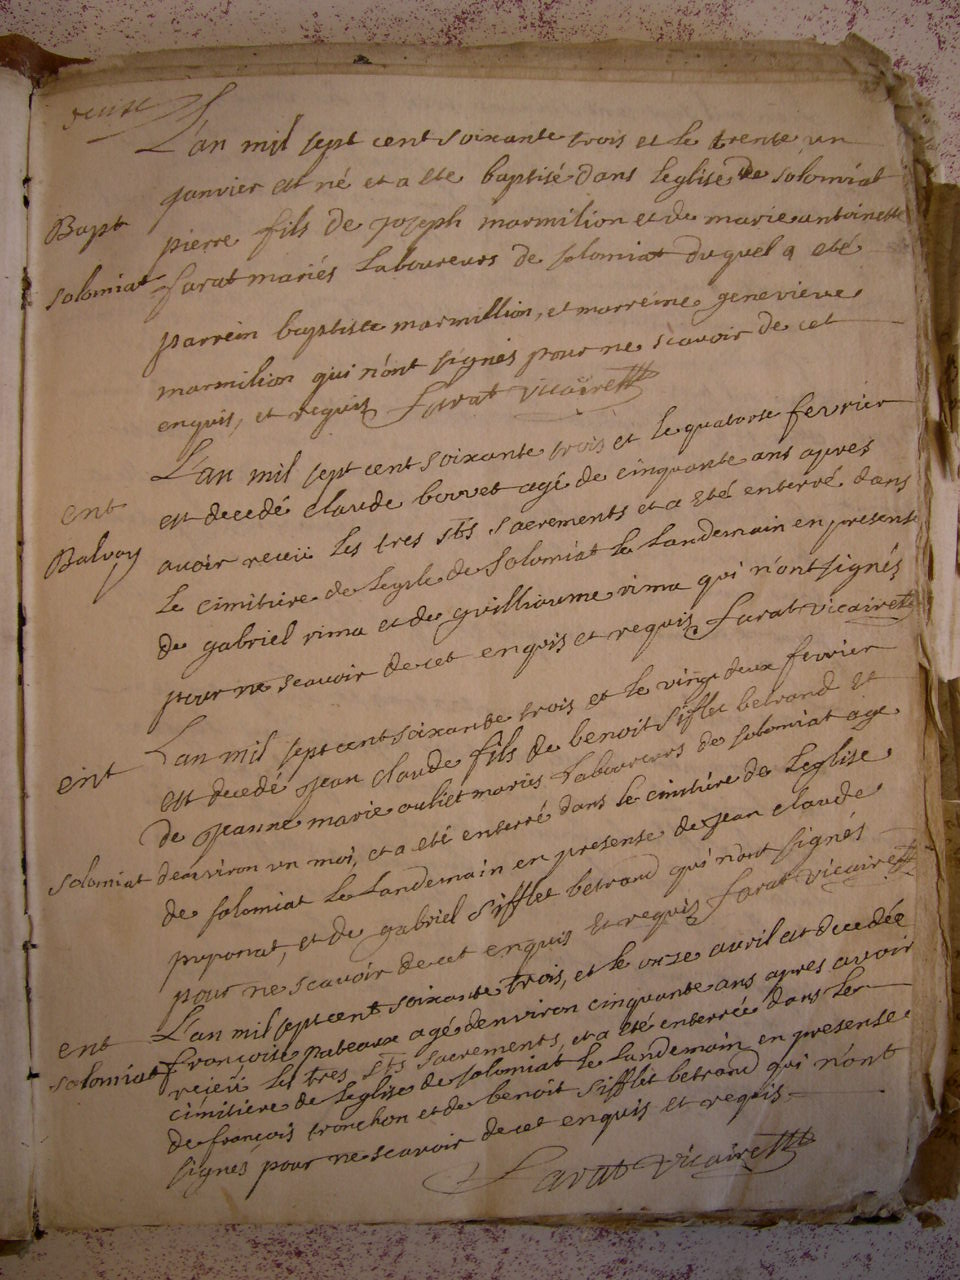 L'an mil sept cent soixante trois et le trente un
janvier est né et a eté baptisé dans leglise de solomiat
Bapt
pierre fils de joseph marmilion et de marie antoinette
solomiat
farat mariés Laboureurs de solomiat duquel a eté
parrein baptiste marmillion, et marreine genevieve
marmilion qui n'ont signés pour ne scavoir de cet
enquis, et requis farat vicaire
L'an mil sept cent soixante trois et le quatorse fevrier
ent
est decedé claude bovvet agé de cinquante ans apres
Balvoy
avoir receü les tres sts sacrements et a eté enterré dans
le cimitiere de de solomiat le Landemain en presense
de gabriel rima et de guillioume rima qui n'ont signés
pour ne scavoir de cet enquis et requis farat vicaire
L'an mil sept cent soixante trois et le vingt deux fevrier
ent
est decedé jean claude fils de benoit sifflet betrand et
de jeanne marie ouliet mariés Laboureurs de solomiat age
solomiat
denviron un moi, et a eté enterré dans le cimitiere de Leglise
de solomiat le Landemain en presense de jean claude
puponat, et de gabriel sifflet betrand qui n'ont signés
pour ne scavoir de cet enquis et requis farat vicaire
L'an mil sept cent soixante trois, et le onze avril est decedée
ent
françoise pateaux agé denviron cinquante ans apres avoir
solomiat
receü les tres sts sacrements, et a eté enterrée dans Ler
cimitiere de Leglise de solomiat le Landemain en presense
de françois tronchon et de benoit sifflet betrand qui n'ont
signes pour ne scavoir de cet enquis et requis
farat vicaire